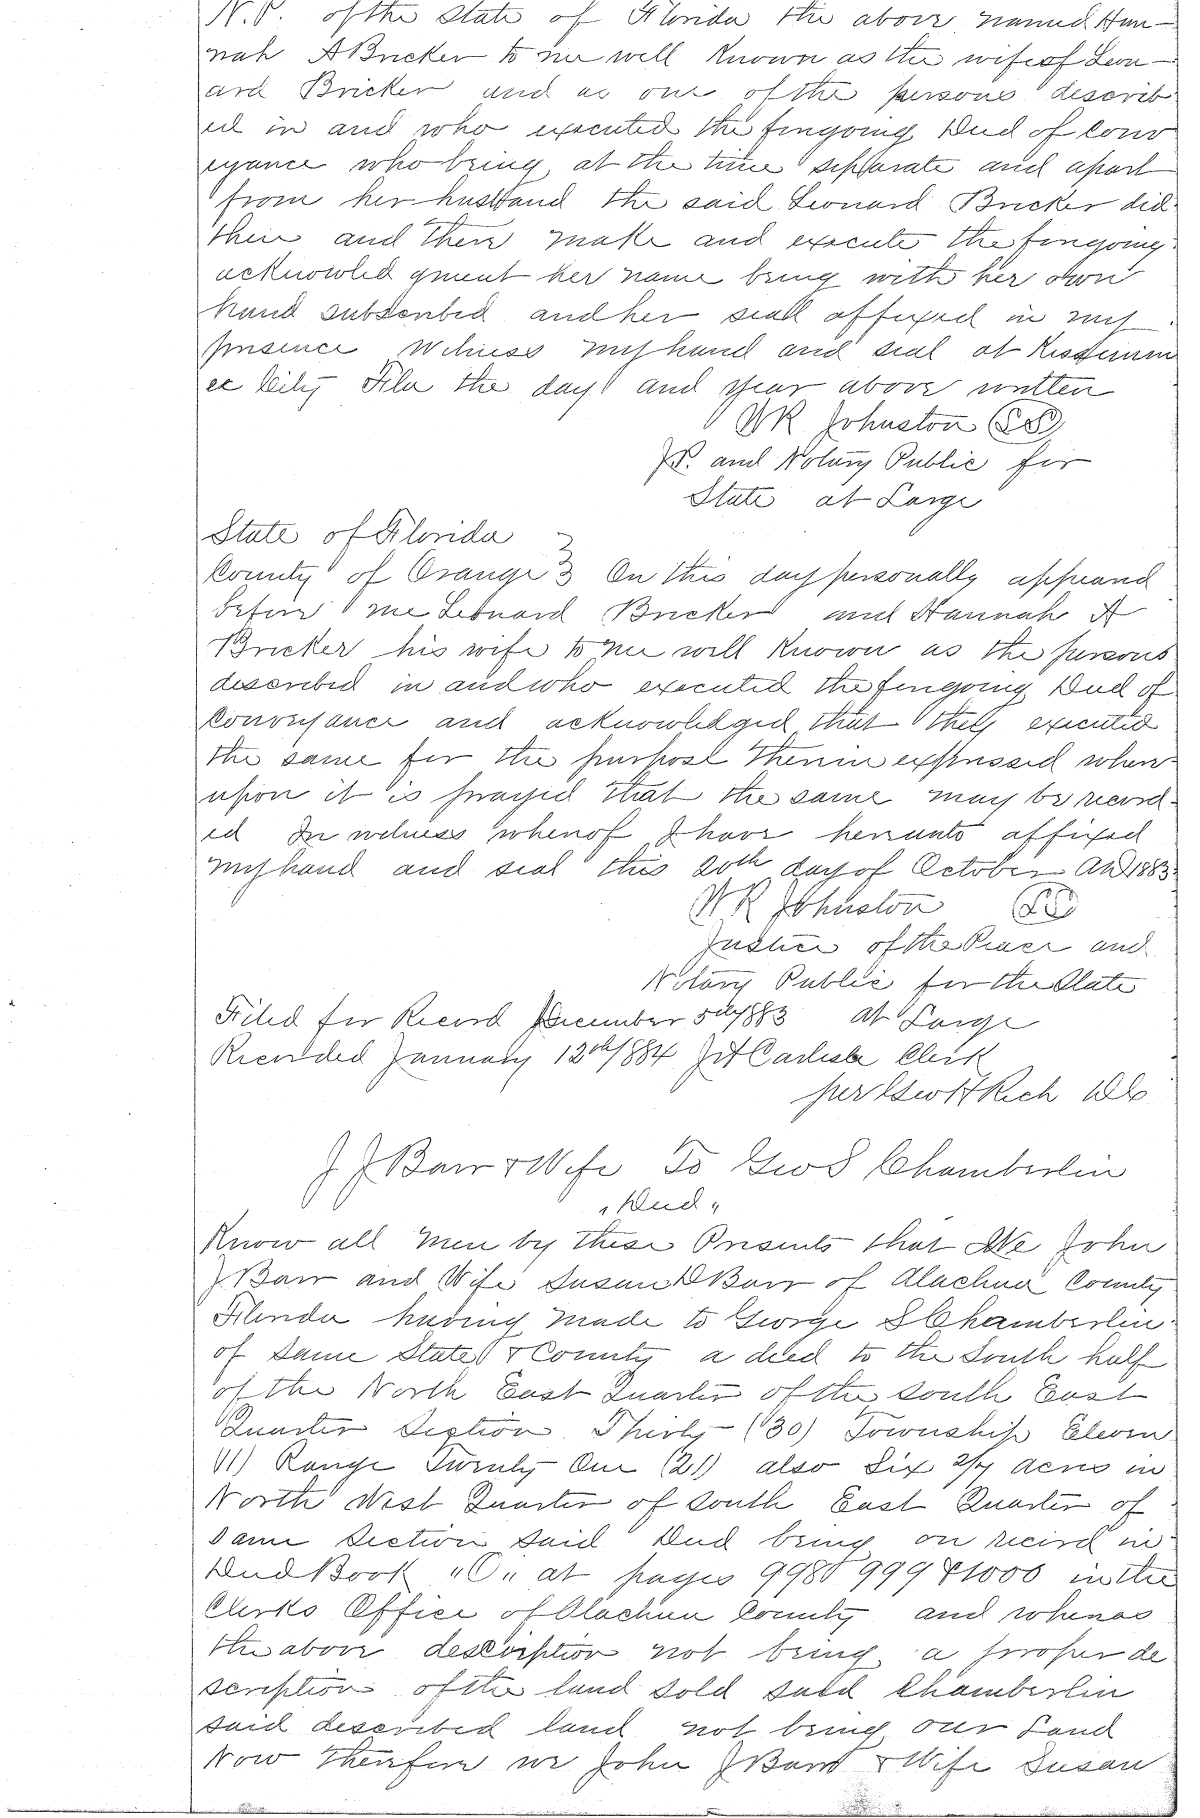 N.P. of the State of Florida the above named Han-
nah A Bricker to me well Known as the wife of Leon-
ard Bricker and as one of the persons describ
ed in and who executed the forgoing Deed of Conv
eyance who being at the time separate and apart
from her husband the said Leonard Bricker did
then and there make and execute the forgoing
acknowled gment her name being with her own
hand subscribed and her seal affixed in my
presence Witness my hand and seal at Kissimm
ee City Fla the day and year above written
W R Johnston (LS)
J.P. and Notary Public for
State at Large
State of Florida }
County of Orange } On this day personally appeard
before me Leonard Bricker and Hannah A
Bricker his wife to me well Known as the persons
described in and who executed the forgoing Deed of
Conveyance and acknowledged that they executed
the same for the purpose therein expressed where
upon it is prayed that the same may be record-
ed In witness whereof I have hereunto affixed
my hand and seal this 20th day of October AD 1883
W R Johnston (LS)
Justice of the Peace and
Notary Public for the State
Filed for Record December 5th/883 at Large
Recorded January 12th/884 J A Carlisle Clerk
per Geo H Rich DC
J J Barr & Wife To Geo S Chamberlin
"Deed"
Know all Men by these Presents that We John
J Barr and Wife Susan D Barr of Alachua County
Florida having made to George S Chamberlin
of Same State & County a deed to the South half
of the North East Quarter of the South East
Quarter Section Thirty (30) Township Eleven
(11) Range Twenty One (21) also Six 2/7 acres in
North West Quarter of South East Quarter of
Same Section said Deed being on record in
Deed Book "O" at pages 998 999 & 1000 in the
Clerks Office of Alachua County and whereas
the above description not being a proper de
scription of the land sold said Chamberlin
said described land not being our Land
Now therefore we John J Barr & Wife Susan